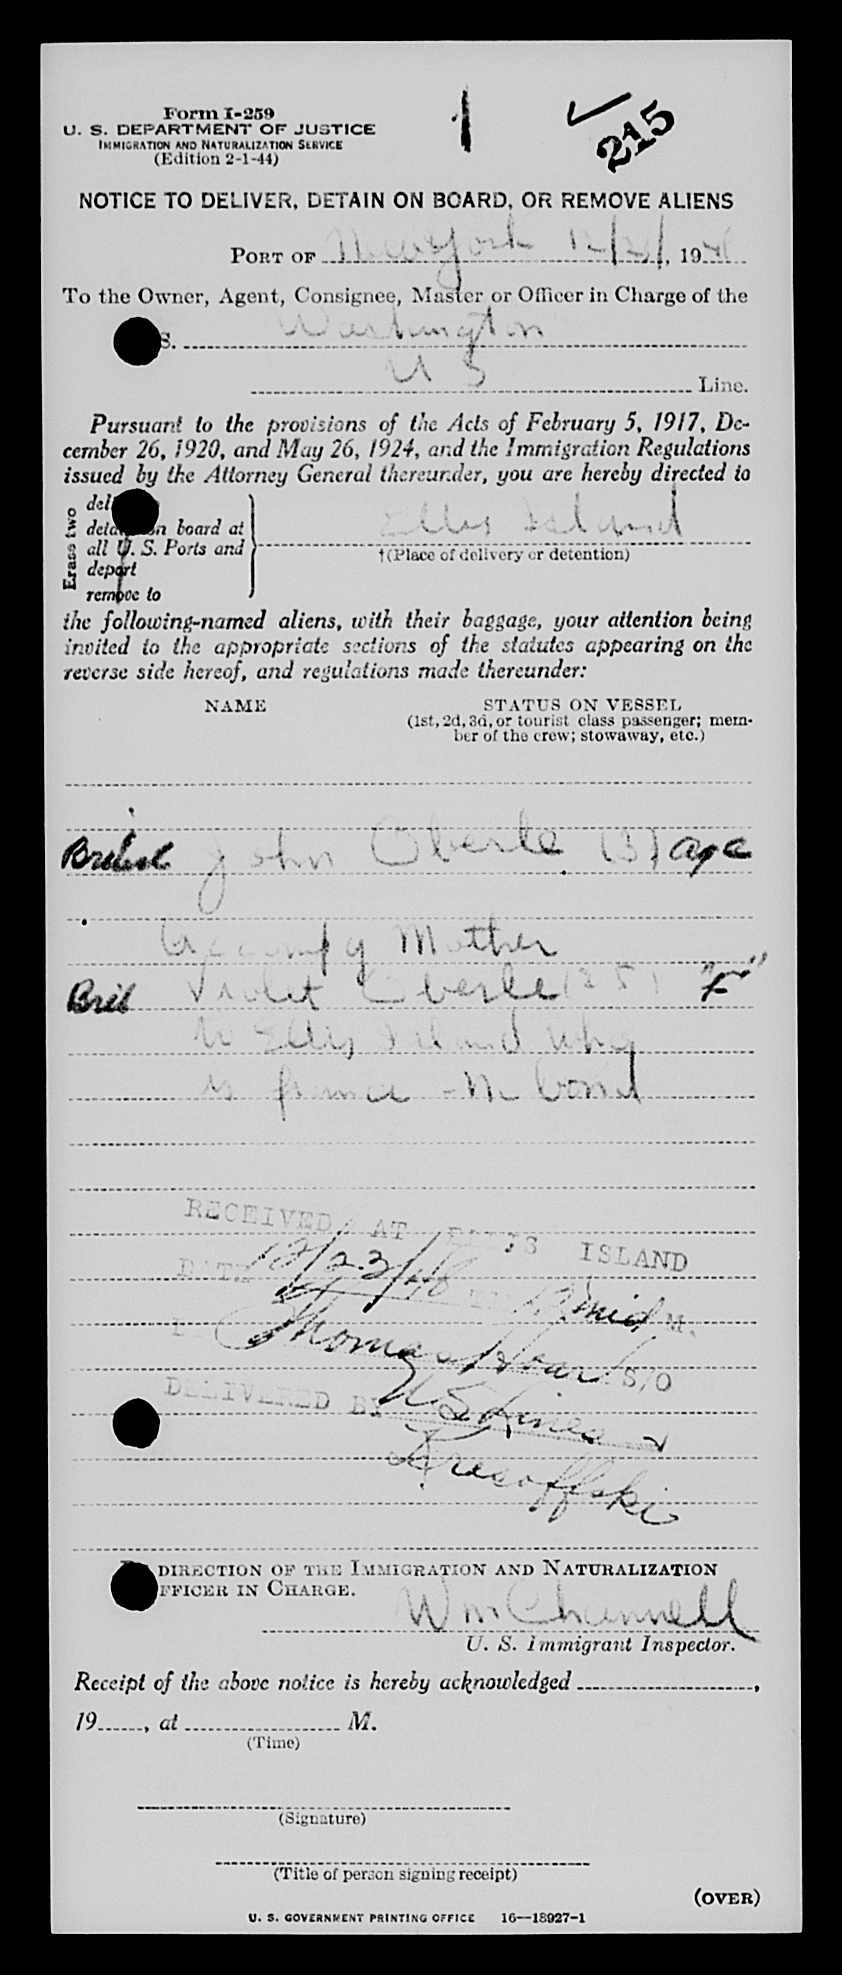 Form I-259
U. S. DEPARTMENT OF JUSTICE
IMMIGRATION AND NATURALIZATION SERVICE
(Edition 2-1-44)
1
215
NOTICE TO DELIVER, DETAIN ON BOARD, OR REMOVE ALIENS
PORT OF New York 12/ / , 19
To the Owner, Agent, Consignee, Master or Officer in Charge of the
S. Washington
U S Line.
Pursuant to the provisions of the Acts of February 5, 1917, De-
cember 26, 1920, and May 26, 1924, and the Immigration Regulations
issued by the Attorney General thereunder, you are hereby directed to
Erase two
del
deta on board at
all U. S. Ports and
depart
remove to
Ellis Island
†(Place of delivery or detention)
the following-named aliens, with their baggage, your attention being
invited to the appropriate sections of the statutes appearing on the
reverse side hereof, and regulations made thereunder:
NAME STATUS ON VESSEL
(1st, 2d, 3d, or tourist class passenger; mem-
ber of the crew; stowaway, etc.)
British John Oberle (3) age
Accompg Mother
Brit Violet Oberle (25) "F"
to Ellis Island
bond
RECEIVED AT ELLIS ISLAND
DATE 12/23/48 12 mid M.
Thomas S/O
DELIVERED BY U S Lines
Kresoffski
DIRECTION OF THE IMMIGRATION AND NATURALIZATION
OFFICER IN CHARGE.
Wm Channell
U. S. Immigrant Inspector.
Receipt of the above notice is hereby acknowledged ,
19 , at M.
(Time)
(Signature)
(Title of person signing receipt)
(OVER)
U. S. GOVERNMENT PRINTING OFFICE 16—18927-1